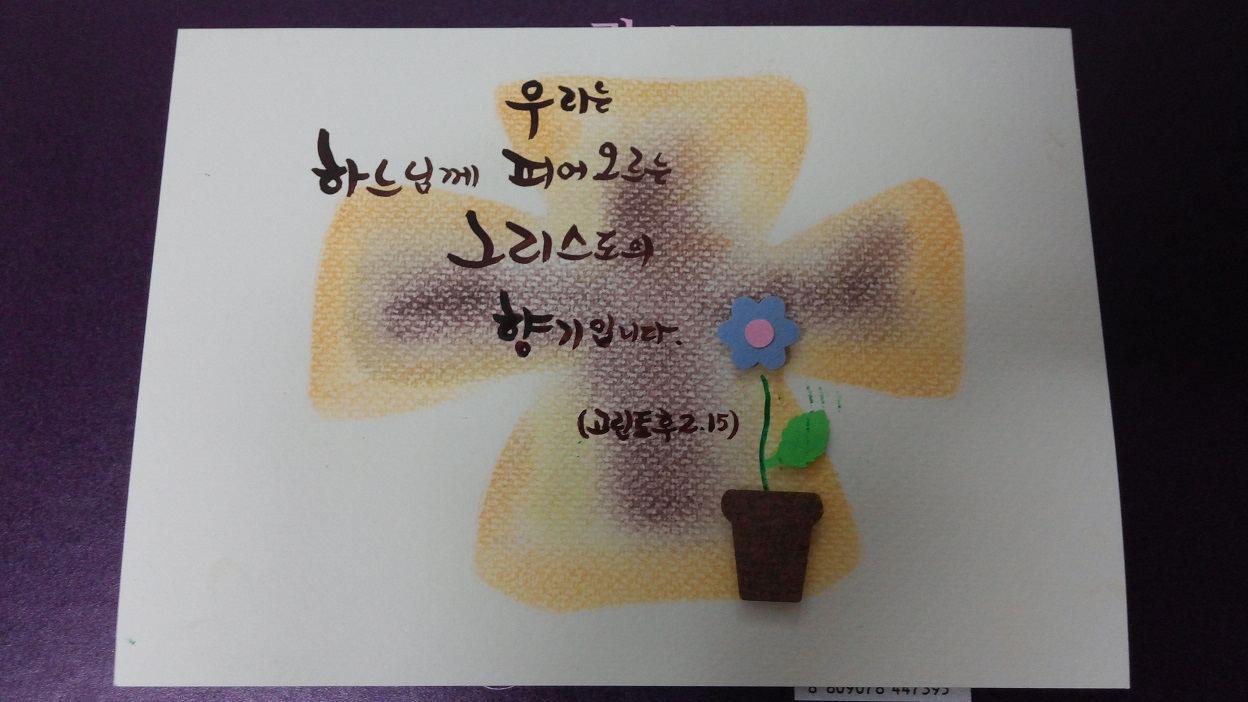 우리는
하느님께 피어오르는
그리스도의
향기입니다.
(고린토후2.15)
8 809078 447393